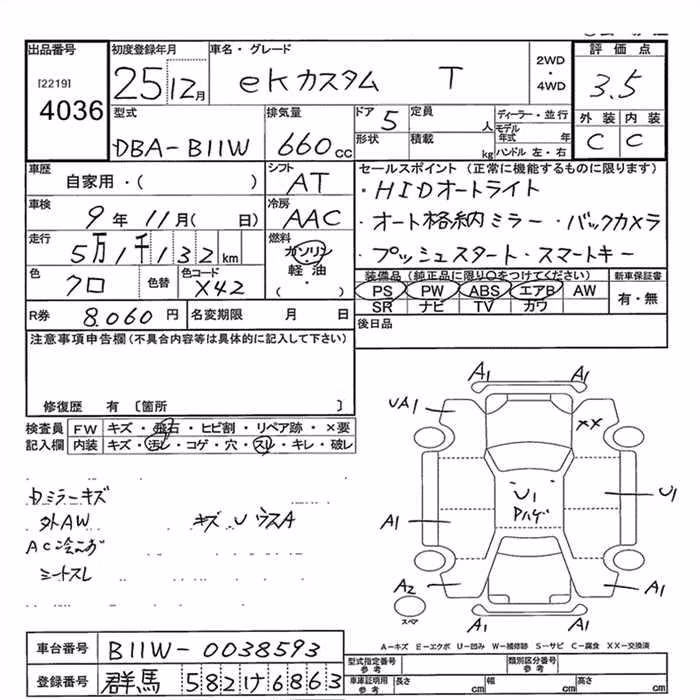 出品番号 初度登録年月 車名・グレード 2WD・4WD 評価点
[2219] 4036 25 12月 ekカスタム T 3.5
型式 排気量 ドア 5 定員 人 ディーラー・並行 外装 内装
DBA-B11W 660cc 形状 積載 kg モデル年式 年 ハンドル 左・右 C C
車歴 シフト セールスポイント (正常に機能するものに限ります)
自家用・( ) AT ・HIDオートライト
車検 冷房 ・オート格納ミラー・バックカメラ
9年 11月( 日) AAC ・プッシュスタート・スマートキー
走行 燃料
5万1千132km ガソリン・軽油・( )
色 色替 色コード 装備品(純正品に限り〇をつけてください) 新車保証書
クロ X42 PS PW ABS エアB AW 有・無
SR ナビ TV カワ
R券 8.060円 名変期限 月 日 後日品
注意事項申告欄(不具合内容等は具体的に記入して下さい)
修復歴 有 〔箇所 〕
検査員 FW キズ・飛石・ヒビ割・リペア跡・×要
記入欄 内装 キズ・汚レ・コゲ・穴・スリ・キレ・破レ
A1 A1
UA1 XX
U1 U1
Pハゲ
A1
A2 A1
A1 A1
スペア
ミラーキズ
外AW キズ U ウスA
シートスレ
A-キズ E-エクボ U-凹み W-補修跡 S-サビ C-腐食 XX-交換済
車台番号 B11W-0038593
登録番号 群馬 582け6863
型式指定番号 参考 類別区分番号 参考
車庫証明用 参考 長さ cm 幅 cm 高さ cm